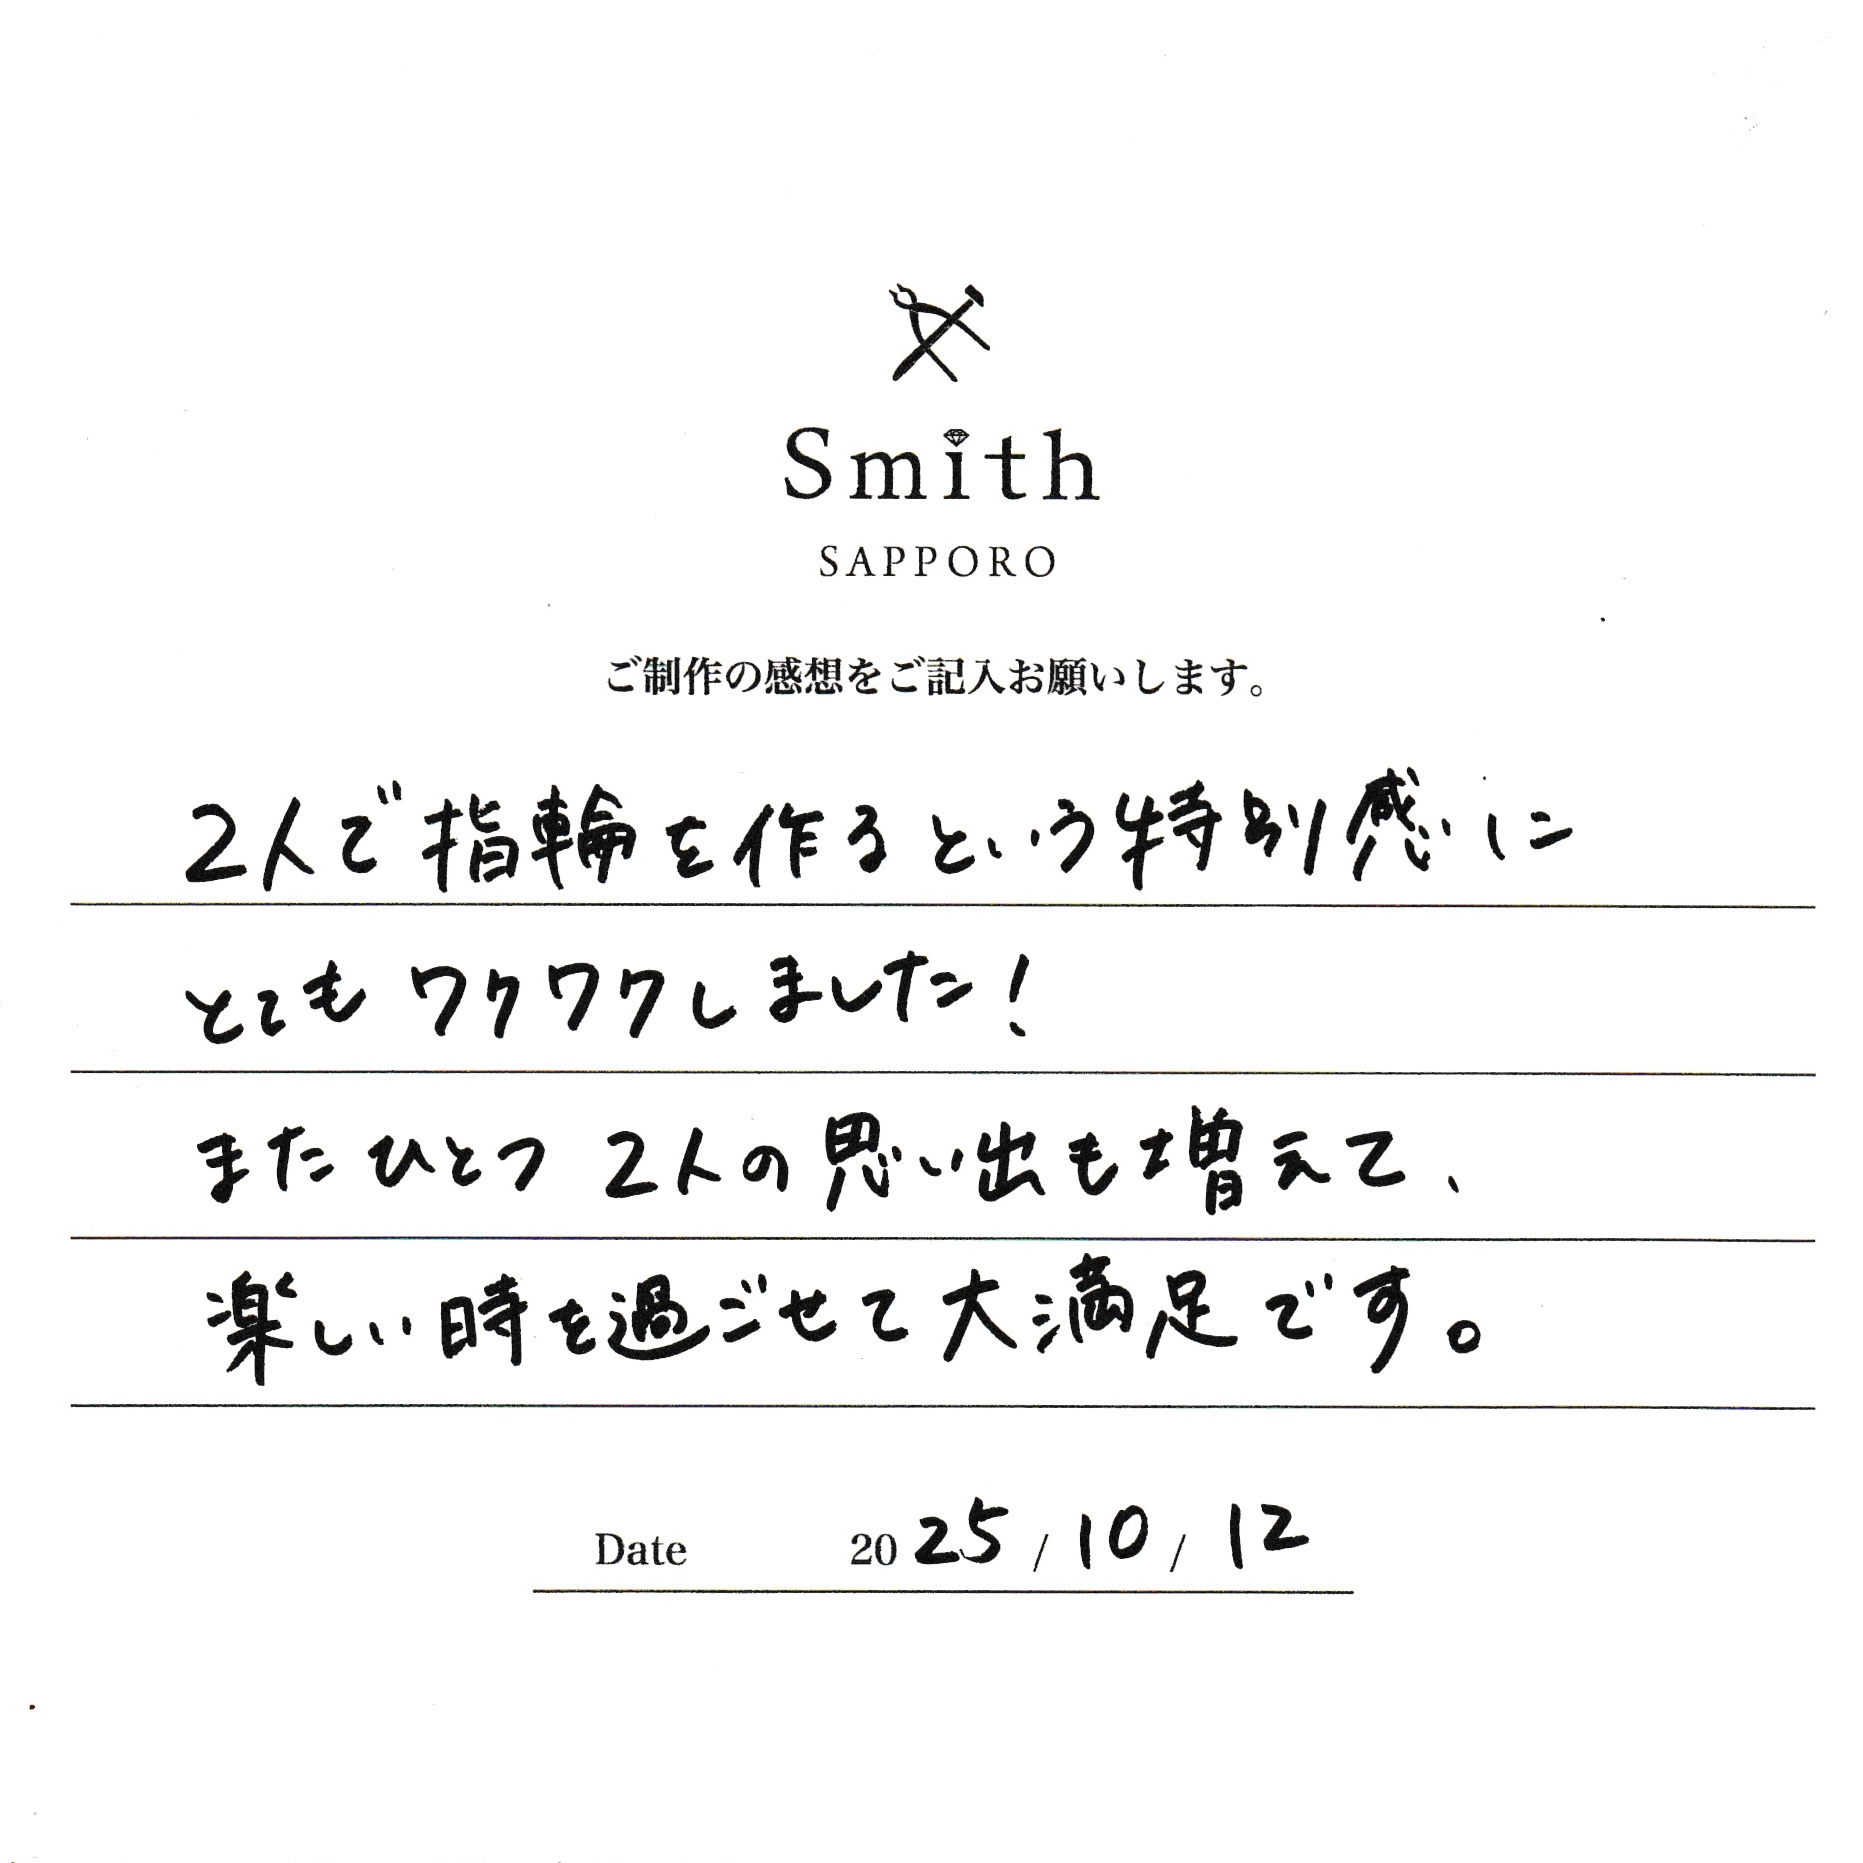 Smith
SAPPORO
ご制作の感想をご記入お願いします。
2人で指輪を作るという特別感に
とてもワクワクしました!
またひとつ 2人の思い出も増えて、
楽しい時を過ごせて大満足です。
Date 2025/10/12